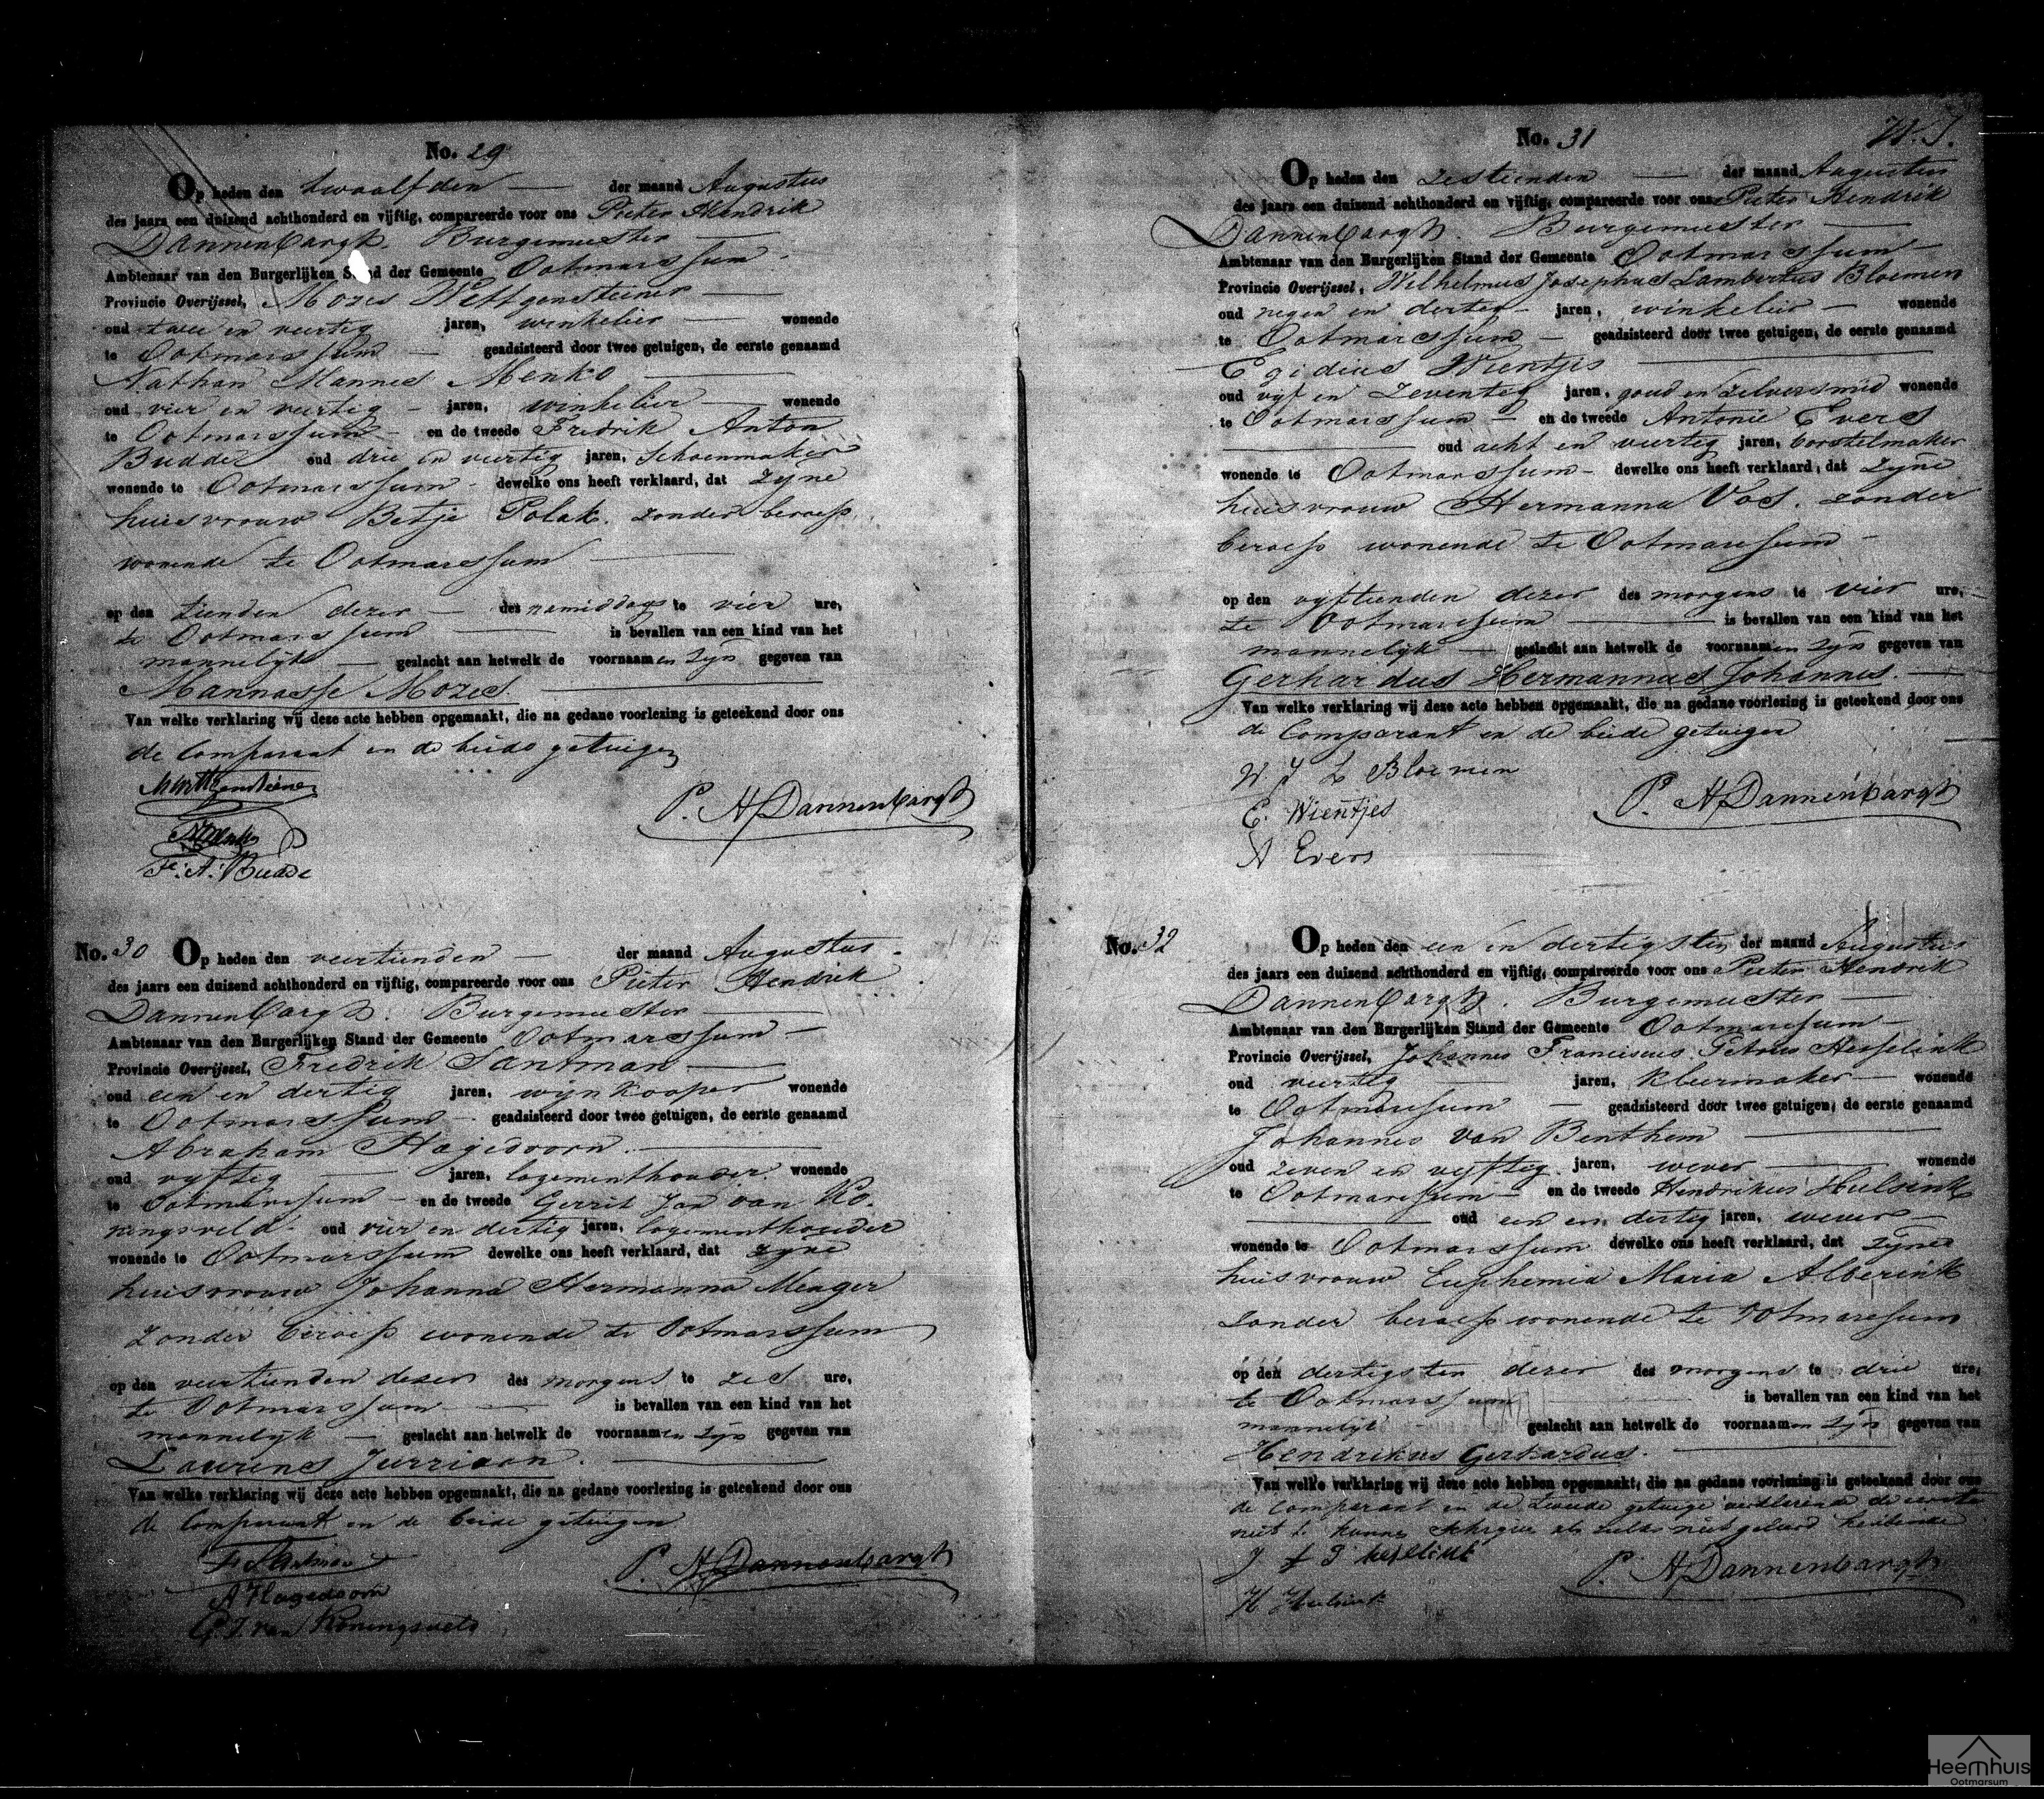 No. 29
Op heden den twaalfden der maand Augustus
des jaars een duizend achthonderd en vijftig, compareerde voor ons Pieter Hendrik
Dannenbargh. Burgemeester
Ambtenaar van den Burgerlijken Stand der Gemeente Ootmarssum
Provincie Overijssel, Mozes Wittgensteiner
oud twee en veertig jaren, winkelier wonende
te Ootmarssum geadsisteerd door twee getuigen, de eerste genaamd
Nathan Mannes Menko
oud vier en veertig jaren, winkelier wonende
te Ootmarssum en de tweede Fredrik Anton
Budde oud drie en veertig jaren, schoenmaker
wonende te Ootmarssum dewelke ons heeft verklaard, dat zyne
huisvrouw Betje Polak. zonder beroep
wonende te Ootmarssum
op den tienden dezer des namiddags te vier ure,
te Ootmarssum is bevallen van een kind van het
mannelijk geslacht aan hetwelk de voornaamen zyn gegeven van
Mannasse Mozes.
Van welke verklaring wij deze acte hebben opgemaakt, die na gedane voorlezing is geteekend door ons
de Comparant en de beide getuigen
P. H Dannenbargh
F. A. Budde
No. 30 Op heden den veertienden der maand Augustus
des jaars een duizend achthonderd en vijftig, compareerde voor ons Pieter Hendrik
Dannenbargh. Burgemeester
Ambtenaar van den Burgerlijken Stand der Gemeente Ootmarssum
Provincie Overijssel, Fredrik Santman
oud een en dertig jaren, wijnkooper wonende
te Ootmarssum geadsisteerd door twee getuigen, de eerste genaamd
Abraham Hagedoorn.
oud vyftig jaren, logementhouder wonende
te Ootmarssum en de tweede Gerrit Jan van Ko-
ningsveld oud vier en dertig jaren, logementhouder
wonende te Ootmarssum dewelke ons heeft verklaard, dat zyne
huisvrouw Johanna Hermanna Menger
zonder beroep wonende te Ootmarssum
op den veertienden dezer des morgens te zes ure,
te Ootmarssum is bevallen van een kind van het
mannelijk geslacht aan hetwelk de voornaamen zyn gegeven van
Laurens Jurriaan.
Van welke verklaring wij deze acte hebben opgemaakt, die na gedane voorlezing is geteekend door ons
de Comparant en de beide getuigen
F Santman
P. H Dannenbargh
A Hagedoorn
G. J. van Koningsveld
No. 31
Op heden den zestienden der maand Augustus
des jaars een duizend achthonderd en vijftig, compareerde voor ons Pieter Hendrik
Dannenbargh. Burgemeester
Ambtenaar van den Burgerlijken Stand der Gemeente Ootmarssum
Provincie Overijssel, Wilhelmus Josephus Lambertus Bloemen
oud negen en dertig jaren, winkelier wonende
te Ootmarssum geadsisteerd door twee getuigen, de eerste genaamd
Egidius Wientjes
oud vyf en zeventig jaren, goud en zilversmid wonende
te Ootmarssum en de tweede Antonie Evers
oud acht en veertig jaren, borstelmaker
wonende te Ootmarssum dewelke ons heeft verklaard, dat zyne
huisvrouw Hermanna Vos. zonder
beroep wonende te Ootmarssum
op den vyftienden dezer des morgens te vier ure,
te Ootmarssum is bevallen van een kind van het
mannelijk geslacht aan hetwelk de voornaamen zyn gegeven van
Gerhardus Hermannus Johannes.
Van welke verklaring wij deze acte hebben opgemaakt, die na gedane voorlezing is geteekend door ons
de Comparant en de beide getuigen
W. J L Bloemen
P. H Dannenbargh
E. Wientjes
A Evers
No. 32 Op heden den een en dertigsten der maand Augustus
des jaars een duizend achthonderd en vijftig, compareerde voor ons Pieter Hendrik
Dannenbargh. Burgemeester
Ambtenaar van den Burgerlijken Stand der Gemeente Ootmarssum
Provincie Overijssel, Johannes Franciscus Petrus Hesselink
oud veertig jaren, kleermaker wonende
te Ootmarssum geadsisteerd door twee getuigen, de eerste genaamd
Johannes van Benthem
oud zeven en vyftig jaren, wever wonende
te Ootmarssum en de tweede Hendrikus Hulsink
oud een en dertig jaren, wever
wonende te Ootmarssum dewelke ons heeft verklaard, dat zyne
huisvrouw Euphemia Maria Alberink
zonder beroep wonende te Ootmarssum
op den dertigsten dezer des morgens te drie ure,
te Ootmarssum is bevallen van een kind van het
mannelijk geslacht aan hetwelk de voornaamen zyn gegeven van
Hendrikus Gerhardus.
Van welke verklaring wij deze acte hebben opgemaakt, die na gedane voorlezing is geteekend door ons
de Comparant en de tweede getuige verklarende de eerste
niet te kunnen schryven als zulks niet geleerd hebbende
J F P Hesselink
P. H Dannenbargh
H Hulsink
Heemhuis
Ootmarsum